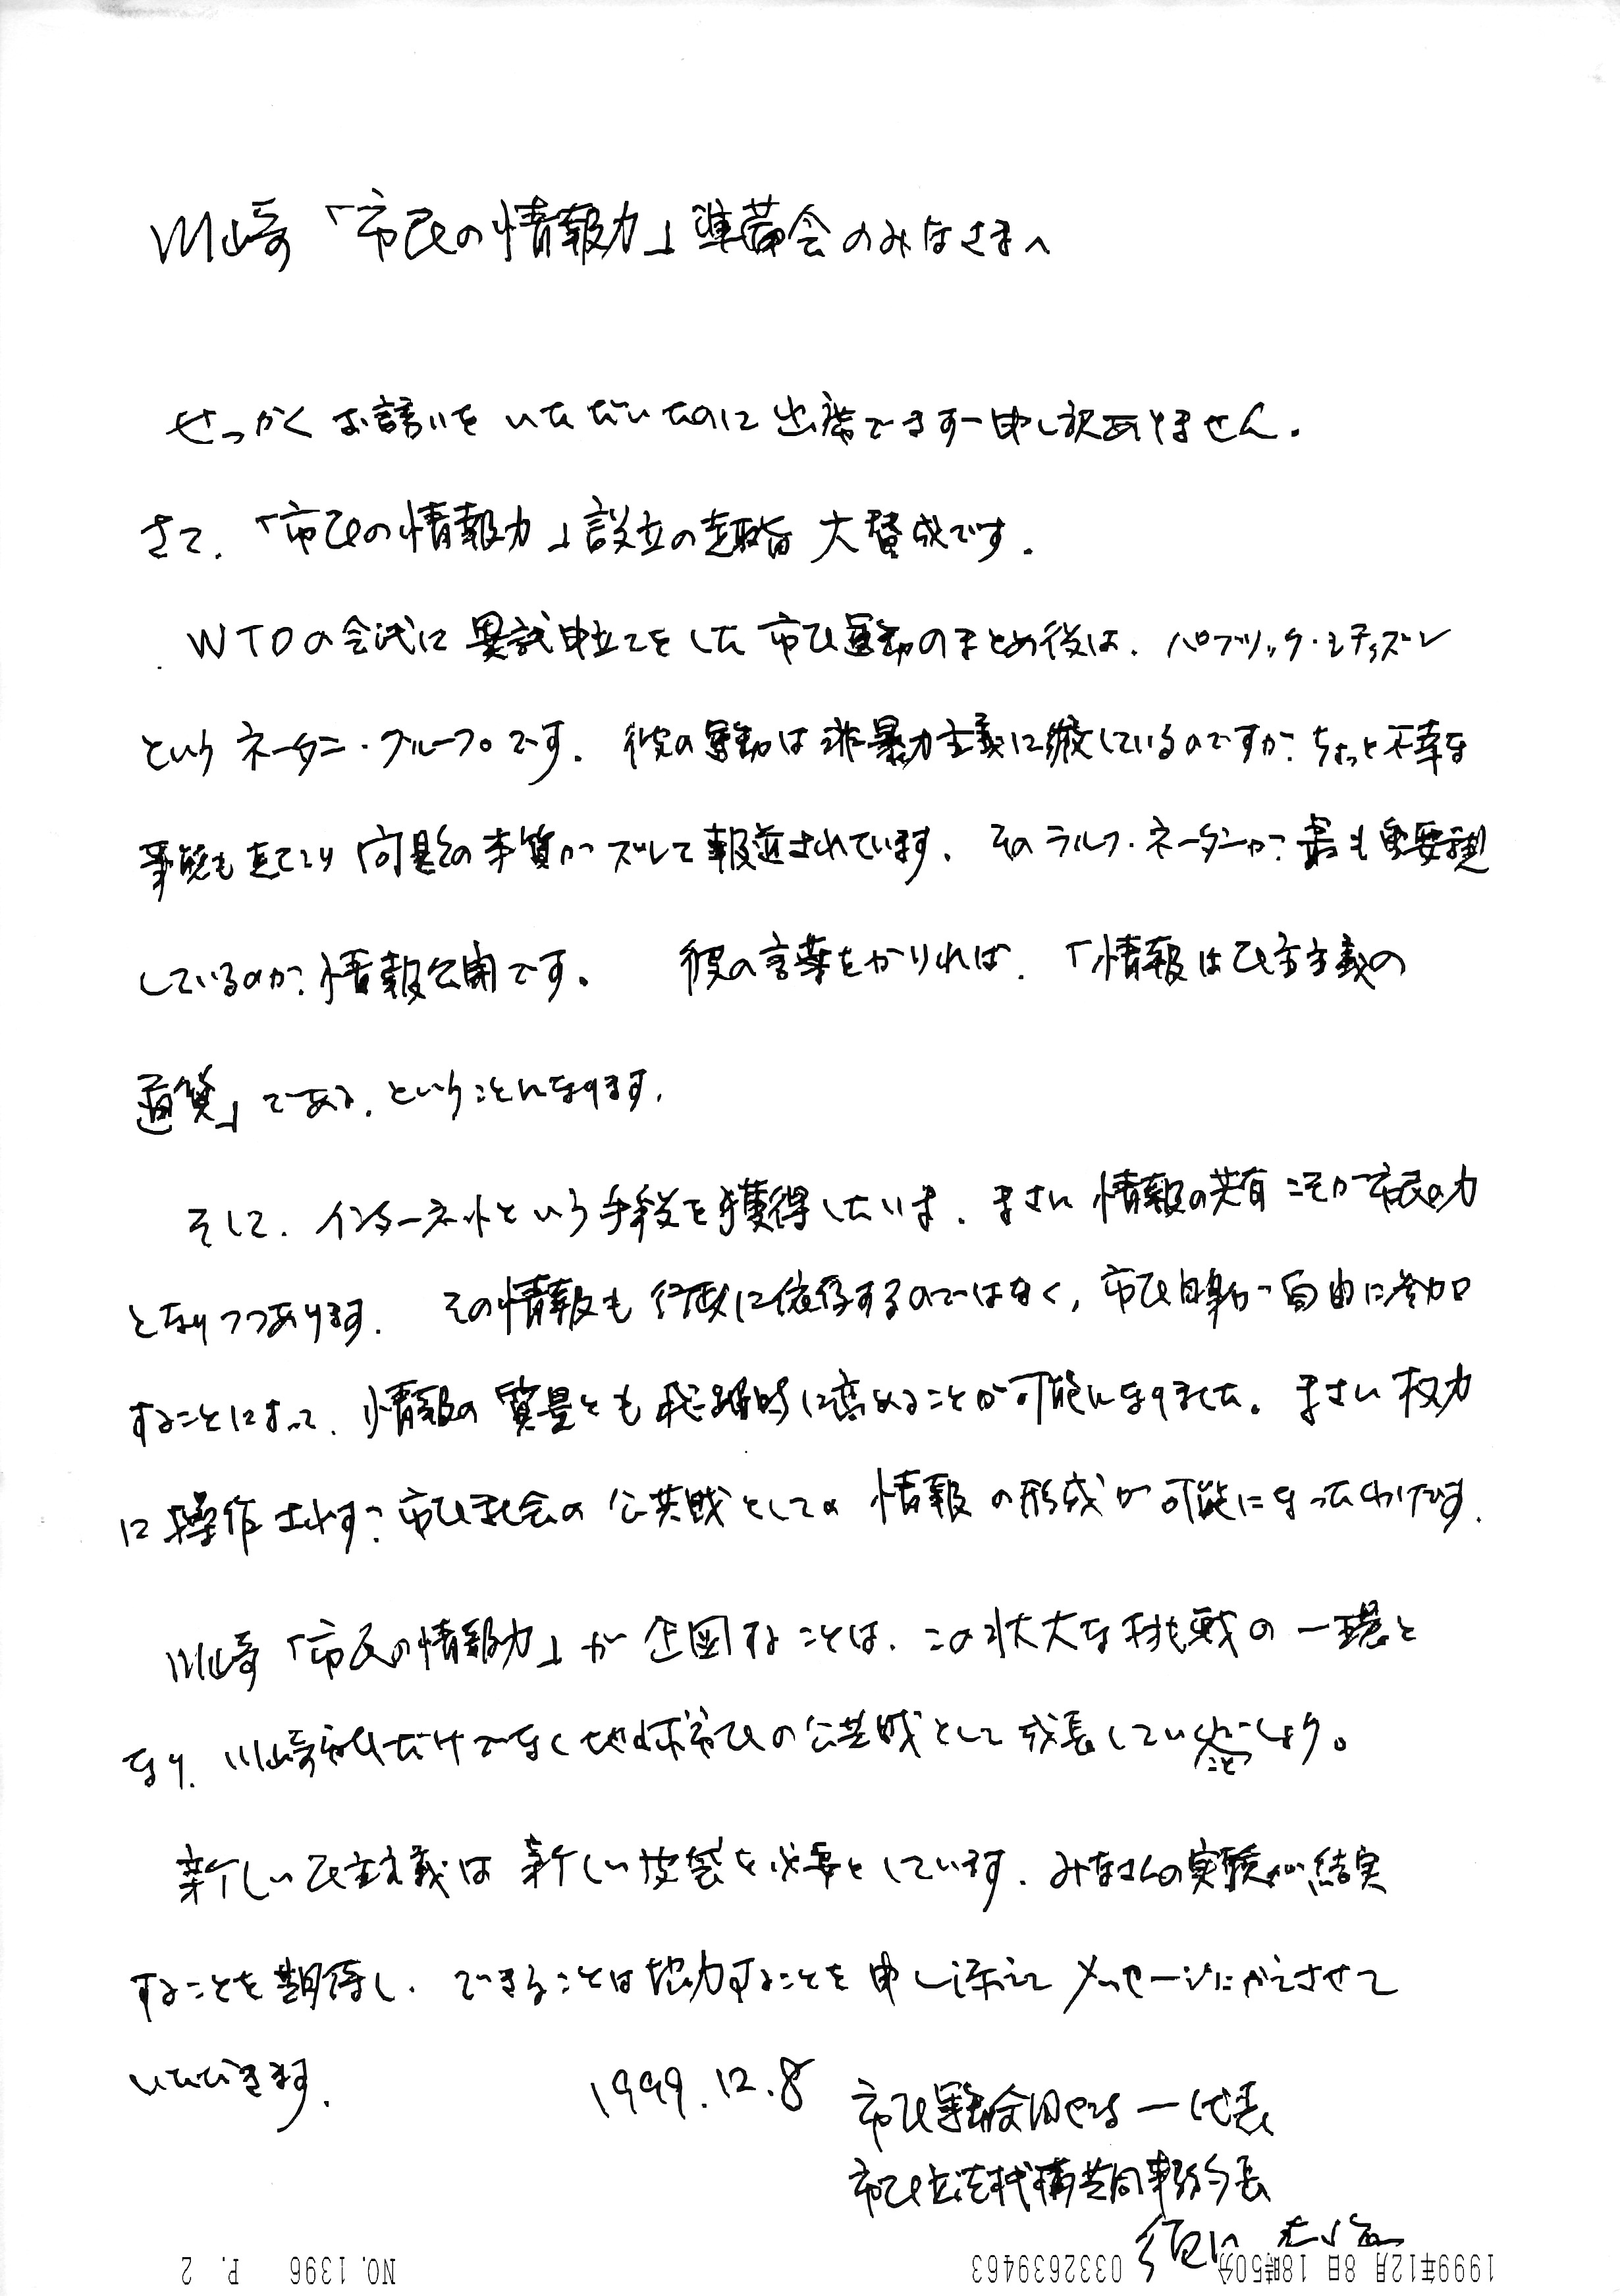 川崎「市民の情報力」準備会のみなさまへ
せっかくお誘いをいただいたのに出席できず申し訳ありません.
さて.「市民の情報力」設立の趣旨 大賛成です.
WTOの会議に異議申立てをした市民運動のまとめ役は. パブリック・シチズン
というネーダー・グループです. 彼の運動は非暴力主義に徹しているのですが、ちょっと不幸な
事態も起こり 問題の本質がズレて報道されています. そのラルフ・ネーダーが、最も重要視
しているのが、情報公開です. 彼の言葉をかりれば.「情報は民主主義の
通貨」である. ということになります.
そして. インターネットという手段を獲得したいま. まさに 情報の共有こそが市民の力
となりつつあります. その情報も行政に依存するのではなく, 市民自身が自由に参加
することによって. 情報の質量とも飛躍的に高めることが可能になりました. まさに 权力
に操作されず、市民社会の公共財としての 情報の形成が可能になったわけです.
川崎「市民の情報力」が企図することは. この壮大な挑戦の一環と
なり. 川崎市民だけでなく地球市民の公共財として成長していくことでしょう。
新しい民主主義は新しい皮袋を必要としています. みなさんの実験が結実
することを期待し. できることは協力することを申し添えて メッセージにかえさせて
いただきます. 1999.12.8
市民運動全国センター代表
市民立法機構共同事務局長
須田 春海
1999年12月 8日 18時50分 0332639463 NO.1396 P. 2